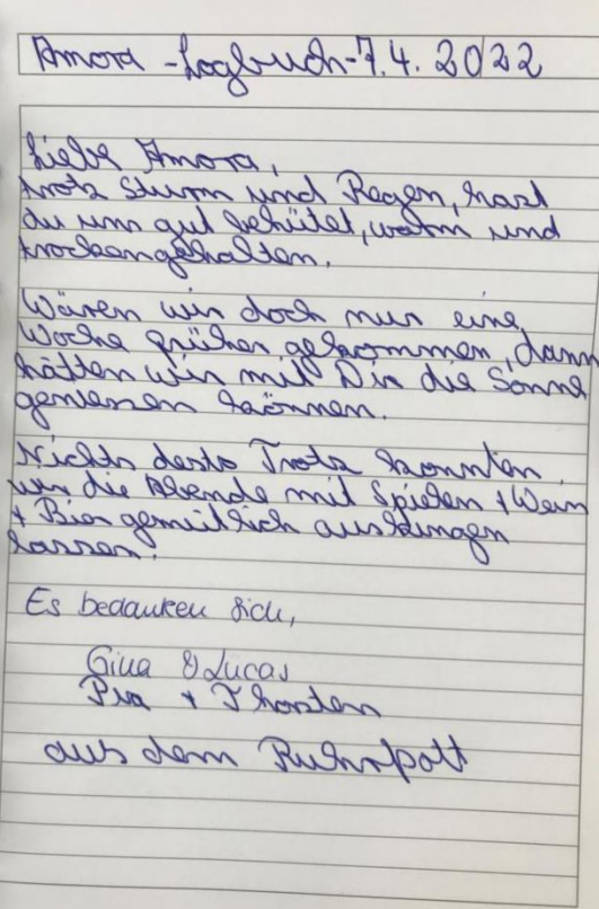 Amora - Logbuch - 7.4. 2022
Liebe Amora,
trotz Sturm und Regen, hast
du uns gut behütet, warm und
trockengehalten.
Wären wir doch nur eine
Woche früher gekommen, dann
hätten wir mit Dir die Sonne
geniessen können.
Nichts desto Trotz konnten
wir die Abende mit Spielen + Wein
+ Bier gemütlich ausklingen
lassen.
Es bedanken sich,
Gina & Lucas
Pia + Thorsten
aus dem Ruhrpott